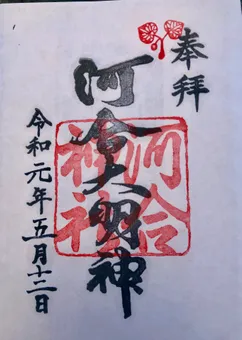 奉拝
河合大明神
河合
神社
令和元年五月十二日